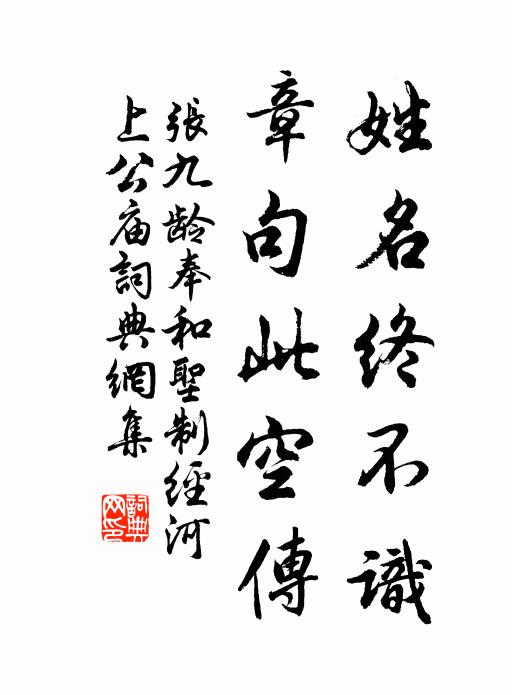 姓名終不識
章句此空傳
張九龄奉和聖制經河
上公庙詞典網集
詞典
网印